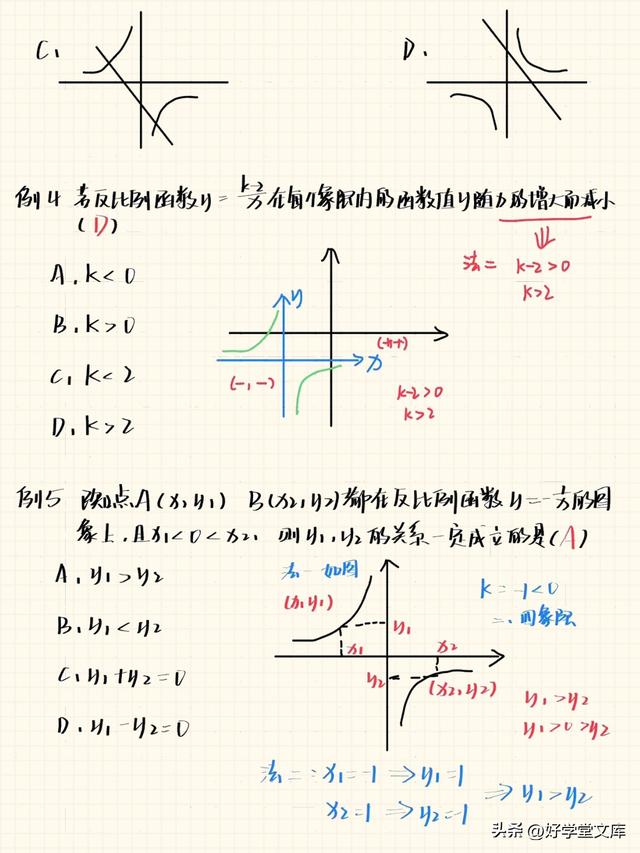 C.
D.
例4 若反比例函数y=\frac{k-2}{x}在每个象限内的函数值y随x的增大而减小
(D)
法二 k-2>0
k>2
A. k<0
B. k>0
C. k<2
D. k>2
y
x
(-,-)
k-2>0
k>2
例5 点A(x1,y1) B(x2,y2)都在反比例函数y=-\frac{1}{x}的图
象上,且x1<0<x2, 则y1,y2的关系一定成立的是(A)
A. y1>y2
B. y1<y2
C. y1+y2=0
D. y1-y2=0
法一如图
(x1,y1)
y1
x1
x2
y2
(x2,y2)
k=-1<0
二、四象限
y1>y2
y1>0>y2
法二:x1=-1⇒y1=1
x2=1⇒y2=-1
⇒y1>y2
头条@好学堂文库